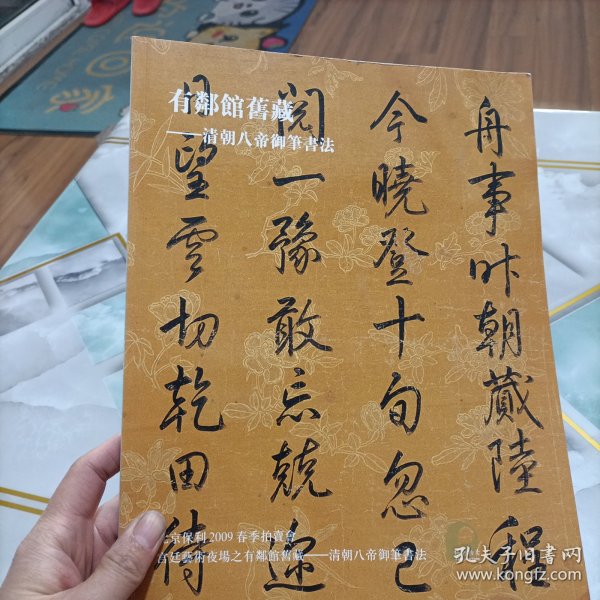 有鄰館舊藏
——清朝八帝御筆書法
舟事昨朝藏陸程
今曉登十旬忽已
閱一豫敢忘兢迎
望雲切乾田待
北京保利2009春季拍賣會
宮廷藝術夜場之有鄰館舊藏——清朝八帝御筆書法
孔夫子旧书网
www.kongfz.com